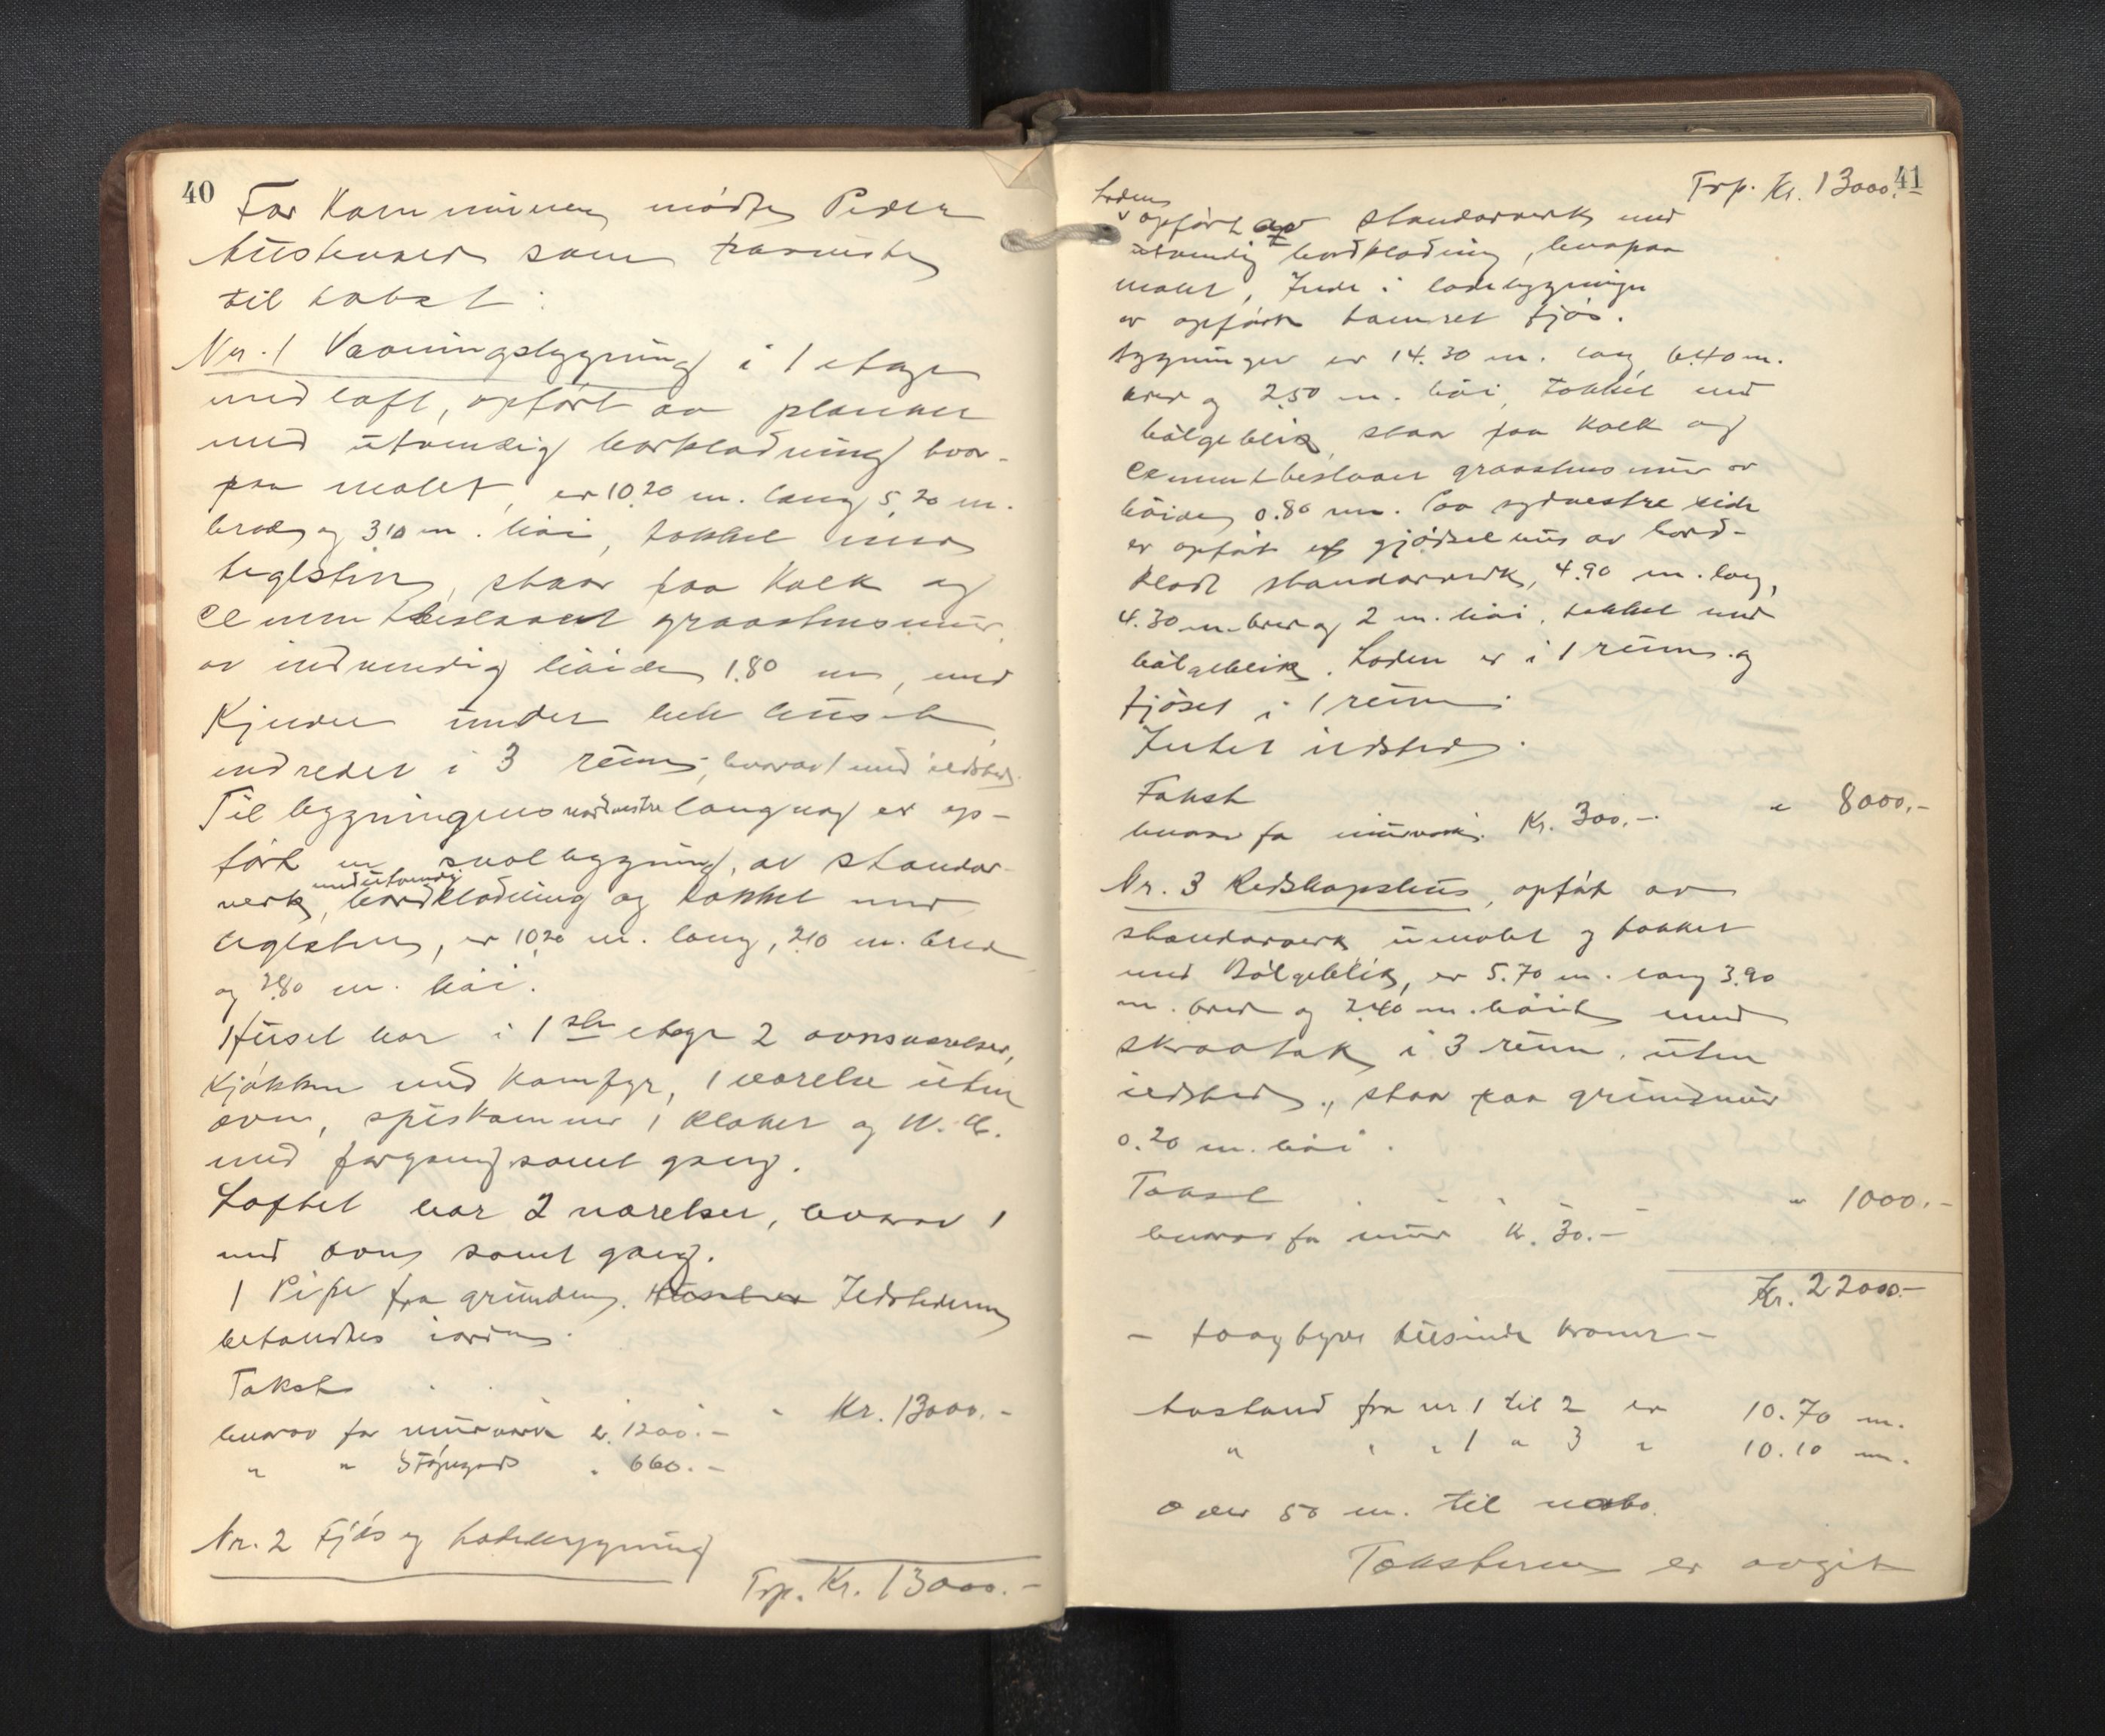 40
For Kommunen mødte Peder
som paaviste
til takst:
Nr. 1 Vaaningsbygning i 1 etage
med loft, opført av planker
med utvendig bordklædning hvor-
paa malet, er 10.20 m. lang 5.20 m.
bred og 3.10 m. høi, tækket med
teglsten, staar paa Kalk og
cementbeslaaet graastensmur
av indvendig høide 1.80 m, med
Kjelder under hele huset,
indredet i 3 rum, hvorav 1 med ildsted.
Til bygningens nordvestre langvæg er op-
ført en svalbygning, av stander-
verk, med utvendig bordklædning og tækket med
teglsten, er 10.20 m. lang, 2.10 m. bred
og 2.80 m. høi.
Huset har i 1ste etage 2 ovnsværelser,
Kjøkken med Komfyr, 1 værelse uten
ovn, spiskammer 1 klosket og W.C.
med forgang samt gang.
Loftet har 2 værelser, hvorav 1
med ovn samt gang.
1 Pipe fra grunden. Huset er Ildstederne
befandtes iorden.
Takst Kr. 13000.-
hvorav for murverk kr. 1200.-
" " 660.-
Nr. 2 Fjøs og Ladebygning
Trp. Kr. 13000.-
41
Trp. Kr. 13000.-
Laden
opført av standerverk med
utvendig bordklædning, hvorpaa
malet, Inde i ladebygningen
er opført tømret fjøs.
Bygningen er 14.30 m. lang 6.40 m.
bred og 2.50 m. høi, tækket med
bølgeblik, staar paa Kalk og
cementbeslaaet graastensmur av
høide 0.80 m. Paa sydvestre side
er opført et gjødselhus av bord-
klædt standerverk, 4.90 m. lang,
4.30 m. bred og 2 m. høi, tækket med
bølgeblik. Laden er i 1 rum og
fjøset i 1 rum.
Intet ildsted.
Takst " 8000.-
hvorav for murverk. Kr. 300.-
Nr. 3 Redskapshus, opført av
standerverk umalet og tækket
med Bølgeblik, er 5.70 m. lang 3.90
m. bred og 2.40 m. høit med
skraatak i 3 rum, uten
ildsted, staar paa grundmur
0.20 m. høi.
Takst " 1000.-
hvorav for mur Kr. 30.-
Kr. 22000.-
- toogtyve tusinde kroner -
Avstand fra nr 1 til 2 er 10.70 m.
" " " 1 " 3 " 10.10 m.
Over 50 m. til nabo.
Taksterne er avgit